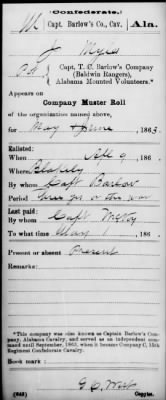 (Confederate.)
M Capt. Barlow's Co., Cav. Ala.
J Myers
Pvt, Capt. T. C. Barlow's Company
(Baldwin Rangers),
Alabama Mounted Volunteers.*
Appears on
Company Muster Roll
of the organization named above,
for May & June, 1863.
Enlisted:
When 9, 186
Where Blakely
By whom Capt Barlow
Period three yrs or the war
Last paid:
By whom Capt
To what time May 1, 186
Present or absent Present
Remarks:
*This company was also known as Captain Barlow's Company, Alabama Cavalry, and served as an independent command until September, 1863, when it became Company C, 15th Regiment Confederate Cavalry.
Book mark:
(642)
Copyist.